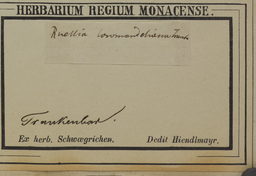 HERBARIUM REGIUM MONACENSE.
Ruellia
Trankenbar.
Ex herb. Schwægrichen. Dedit Hiendlmayr.